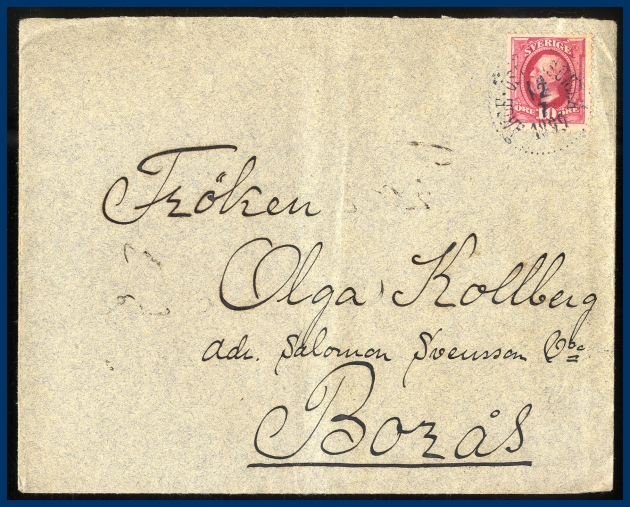 SVERIGE
ÖRE 10 ÖRE
12
1899
Fröken
Olga Kollberg
adr. Salomon Svensson & Co
Borås